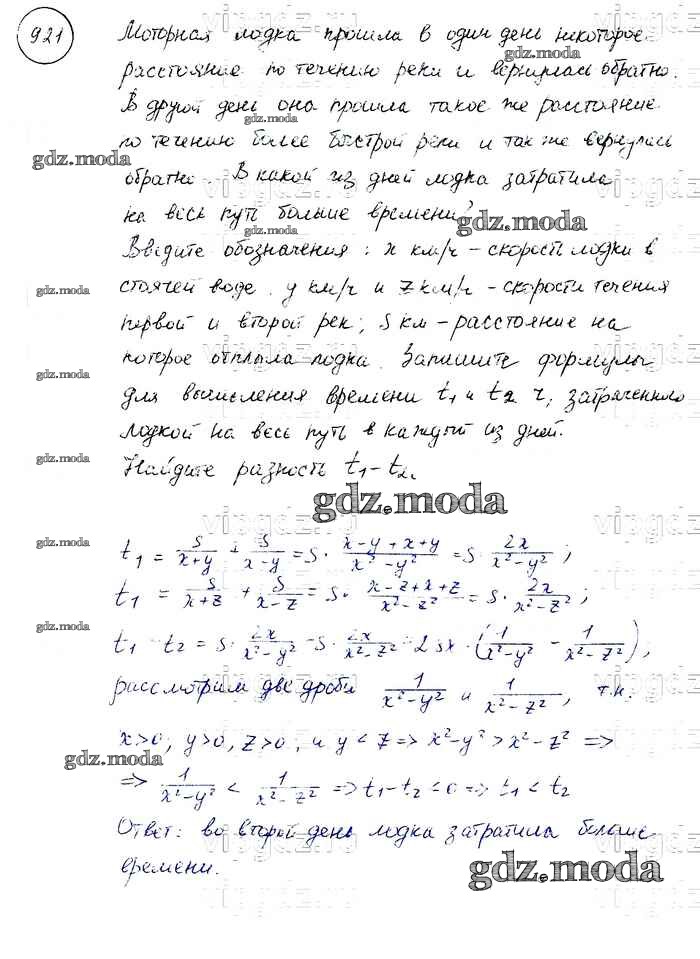 921 Моторная лодка прошла в один день некоторое
расстояние по течению реки и вернулась обратно.
В другой день она прошла такое же расстояние
по течению более быстрой реки и так же вернулась
обратно. В какой из дней лодка затратила
на весь путь больше времени?
Введите обозначения: x км/ч - скорость лодки в
стоячей воде, y км/ч и z км/ч - скорости течения
первой и второй рек; s км - расстояние на
которое отплыла лодка. Запишите формулы
для вычисления времени t₁ и t₂ ч, затраченного
лодкой на весь путь в каждый из дней.
Найдите разность t₁-t₂.
t₁ = s/(x+y) + s/(x-y) = s · (x-y+x+y)/(x²-y²) = s · 2x/(x²-y²);
t₁ = s/(x+z) + s/(x-z) = s · (x-z+x+z)/(x²-z²) = s · 2x/(x²-z²);
t₁ - t₂ = s · 2x/(x²-y²) - s · 2x/(x²-z²) = 2sx · (1/(x²-y²) - 1/(x²-z²));
рассмотрим две дроби 1/(x²-y²) и 1/(x²-z²), т.к.
x>0, y>0, z>0, и y<z => x²-y² > x²-z² =>
=> 1/(x²-y²) < 1/(x²-z²) => t₁-t₂<0 => t₁<t₂
Ответ: во второй день лодка затратила больше
времени.
gdz.moda
gdz.moda
gdz.moda
gdz.moda
gdz.moda
gdz.moda
gdz.moda
gdz.moda
gdz.moda
gdz.moda
gdz.moda
gdz.moda
gdz.moda